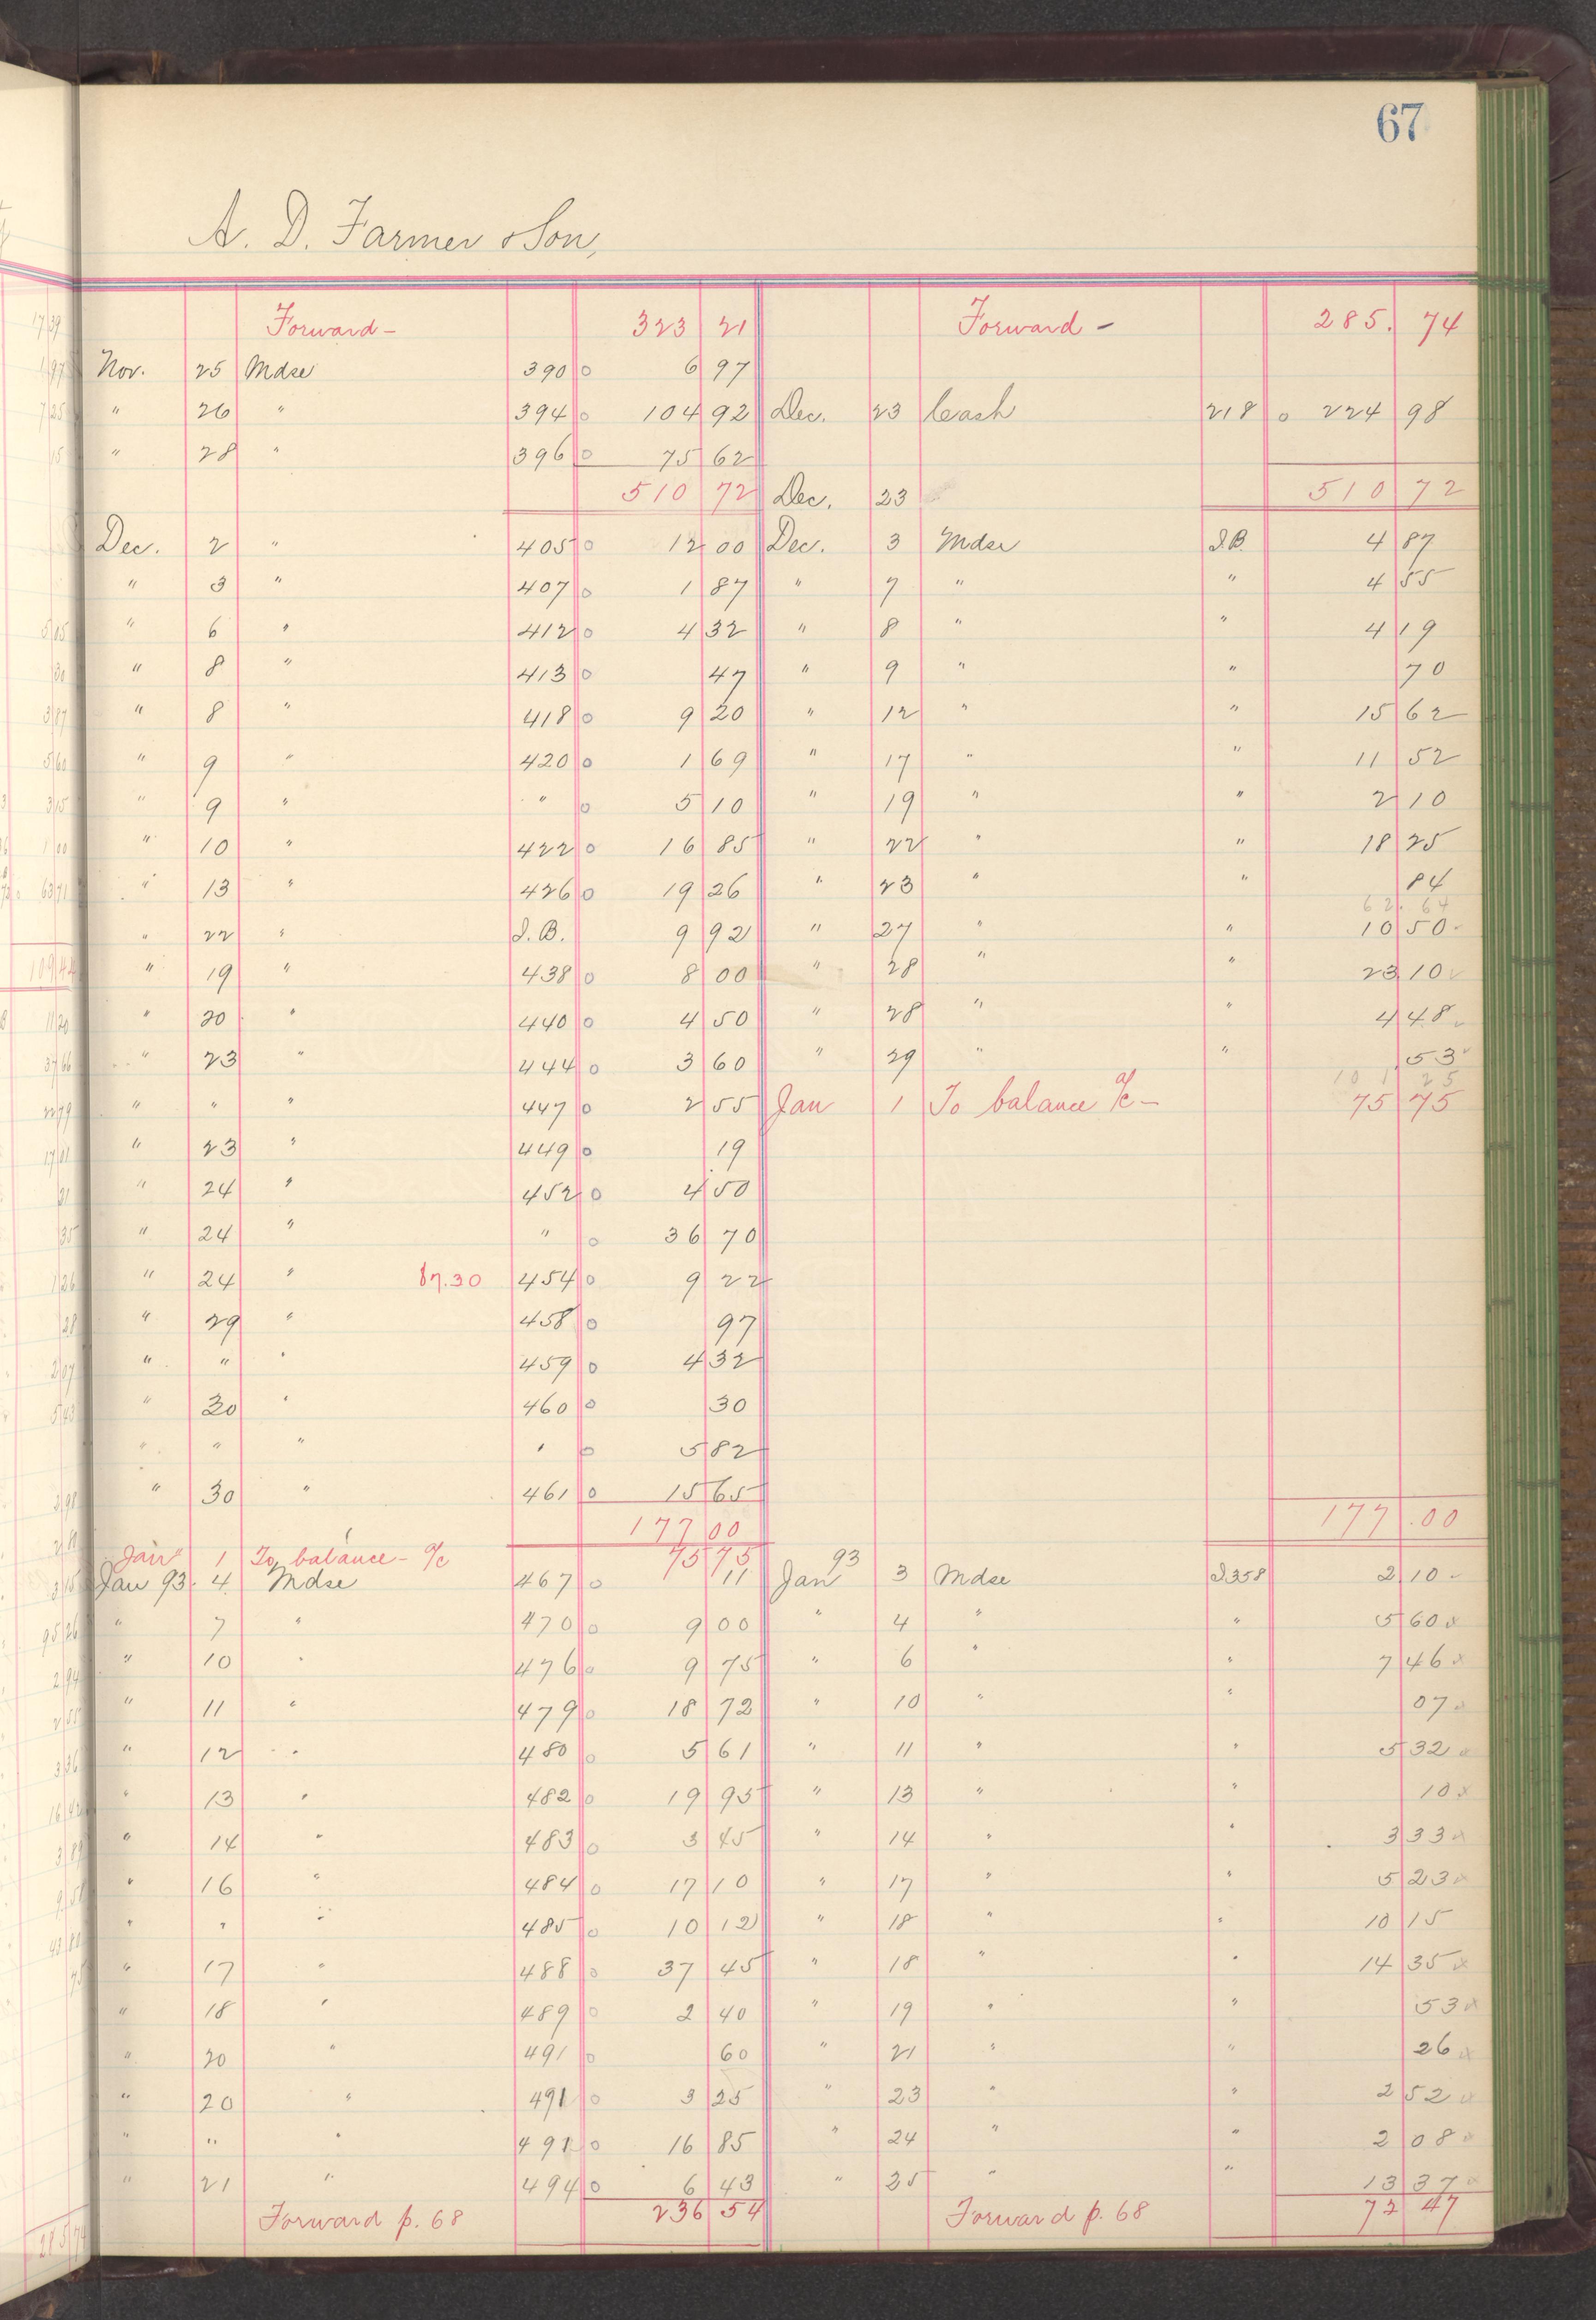 67
A. D. Farmer & Son,
Forward – 323 21 Forward – 285. 74
Nov. 25 Mdse 390 0 6 97
" 26 " 394 0 104 92 Dec. 23 Cash 218 0 224 98
" 28 " 396 0 75 62
510 72 Dec. 23 510 72
Dec. 2 " 405 0 12 00 Dec. 3 Mdse I.B. 4 87
" 3 " 407 0 1 87 " 7 " " 4 55
" 6 " 412 0 4 32 " 8 " " 4 19
" 8 " 413 0 47 " 9 " " 70
" 8 " 418 0 9 20 " 12 " " 15 62
" 9 " 420 0 1 69 " 17 " " 11 52
" 9 " " 0 5 10 " 19 " " 2 10
" 10 " 422 0 16 85 " 22 " " 18 25
" 13 " 426 0 19 26 " 23 " " 84
62. 64
" 22 " I.B. 9 92 " 27 " " 10 50
" 19 " 438 0 8 00 " 28 " " 23 10
" 20 " 440 0 4 50 " 28 " " 4 48
" 23 " 444 0 3 60 " 29 " " 53
101 25
" " " 447 0 2 55 Jan 1 To balance a/c – 75 75
" 23 " 449 0 19
" 24 " 452 0 4 50
" 24 " " 0 36 70
" 24 " 87.30 454 0 9 22
" 29 " 458 0 97
" " " 459 0 4 32
" 30 " 460 0 30
" " " " 0 5 82
" 30 " 461 0 15 65
177 00 177.00
Jan 1 To balance – a/c 75 75
Jan 93. 4 Mdse 467 0 11 Jan 93 3 Mdse I358 2 10
" 7 " 470 0 9 00 " 4 " " 5 60
" 10 " 476 0 9 75 " 6 " " 7 46
" 11 " 479 0 18 72 " 10 " " 07
" 12 " 480 0 5 61 " 11 " " 5 32
" 13 " 482 0 19 95 " 13 " " 10
" 14 " 483 0 3 45 " 14 " " 3 33
" 16 " 484 0 17 10 " 17 " " 5 23
" " " 485 0 10 12 " 18 " " 10 15
" 17 " 488 0 37 45 " 18 " " 14 35
" 18 " 489 0 2 40 " 19 " " 53
" 20 " 491 0 60 " 21 " " 26
" 20 " 491 0 3 25 " 23 " " 2 52
" " " 491 0 16 85 " 24 " " 2 08
" 21 " 494 0 6 43 " 25 " " 13 37
Forward p. 68 236 54 Forward p. 68 72 47